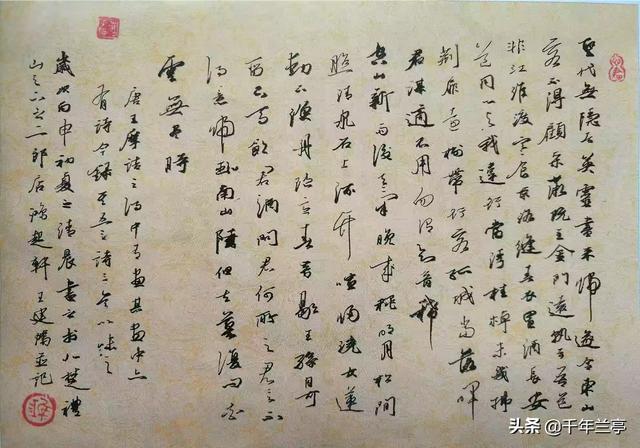 聖代無隱者英靈盡來歸遂令東山
客不得顧采薇既至金門遠孰云吾道
非江淮度寒食京洛縫春衣置酒長安
道同心與我違行當浮桂棹未幾拂
荊扉遠樹帶行客孤城當落暉
吾謀適不用勿謂知音稀
空山新雨後天氣晚來秋明月松間
照清泉石上流竹喧歸浣女蓮
動下漁舟隨意春芳歇王孫自可
留下馬飲君酒問君何所之君言不
得意歸臥南山陲但去莫復問白
雲無盡時
唐王摩詰之詩中有畫其畫中
有詩今錄其五言詩三首以
歲次丙申初夏之清晨書之於楚禮
山之居軒王建鴻並記
头条 @千年兰亭